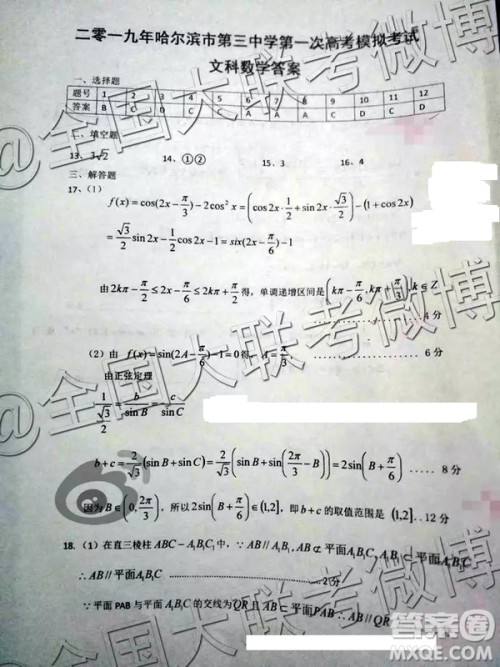 二零一九年哈尔滨市第三中学第一次高考模拟考试
文科数学答案
一、选择题
题号 1 2 3 4 5 6 7 8 9 10 11 12
答案 B C D C A D C A D
二、填空题
13、3√2 14、①② 15、3 16、4
三、解答题
17、(1)
f(x)=cos(2x-π/3)-2cos²x=(cos2x·1/2+sin2x·√3/2)-(1+cos2x)
=√3/2 sin2x-1/2 cos2x-1=six(2x-π/6)-1
由2kπ-π/2≤2x-π/6≤2kπ+π/2得,单调递增区间是[kπ-π/6,kπ+π/3],k∈Z ……4分
(2)由 f(x)=sin(2A-π/6)-1=0得,A=π/3 …………6分
由正弦定理
1/(√3/2)=b/sinB=c/sinC
b+c=2/√3(sinB+sinC)=2/√3(sinB+sin(2π/3-B))=2sin(B+π/6) …… 8分
因为B∈(0,2π/3),所以2sin(B+π/6)∈(1,2],即b+c的取值范围是(1,2]..12分
18、(1)在直三棱柱ABC-A₁B₁C₁中,∵AB//A₁B₁,AB⊄平面A₁B₁C
∴AB//平面A₁B₁C……2分
∵平面PAB与平面A₁B₁C的交线为QR且AB⊂平面PAB∴AB//QR
@全国大联考微博
@全国大联考微博
@全国大联考微博
答案圈